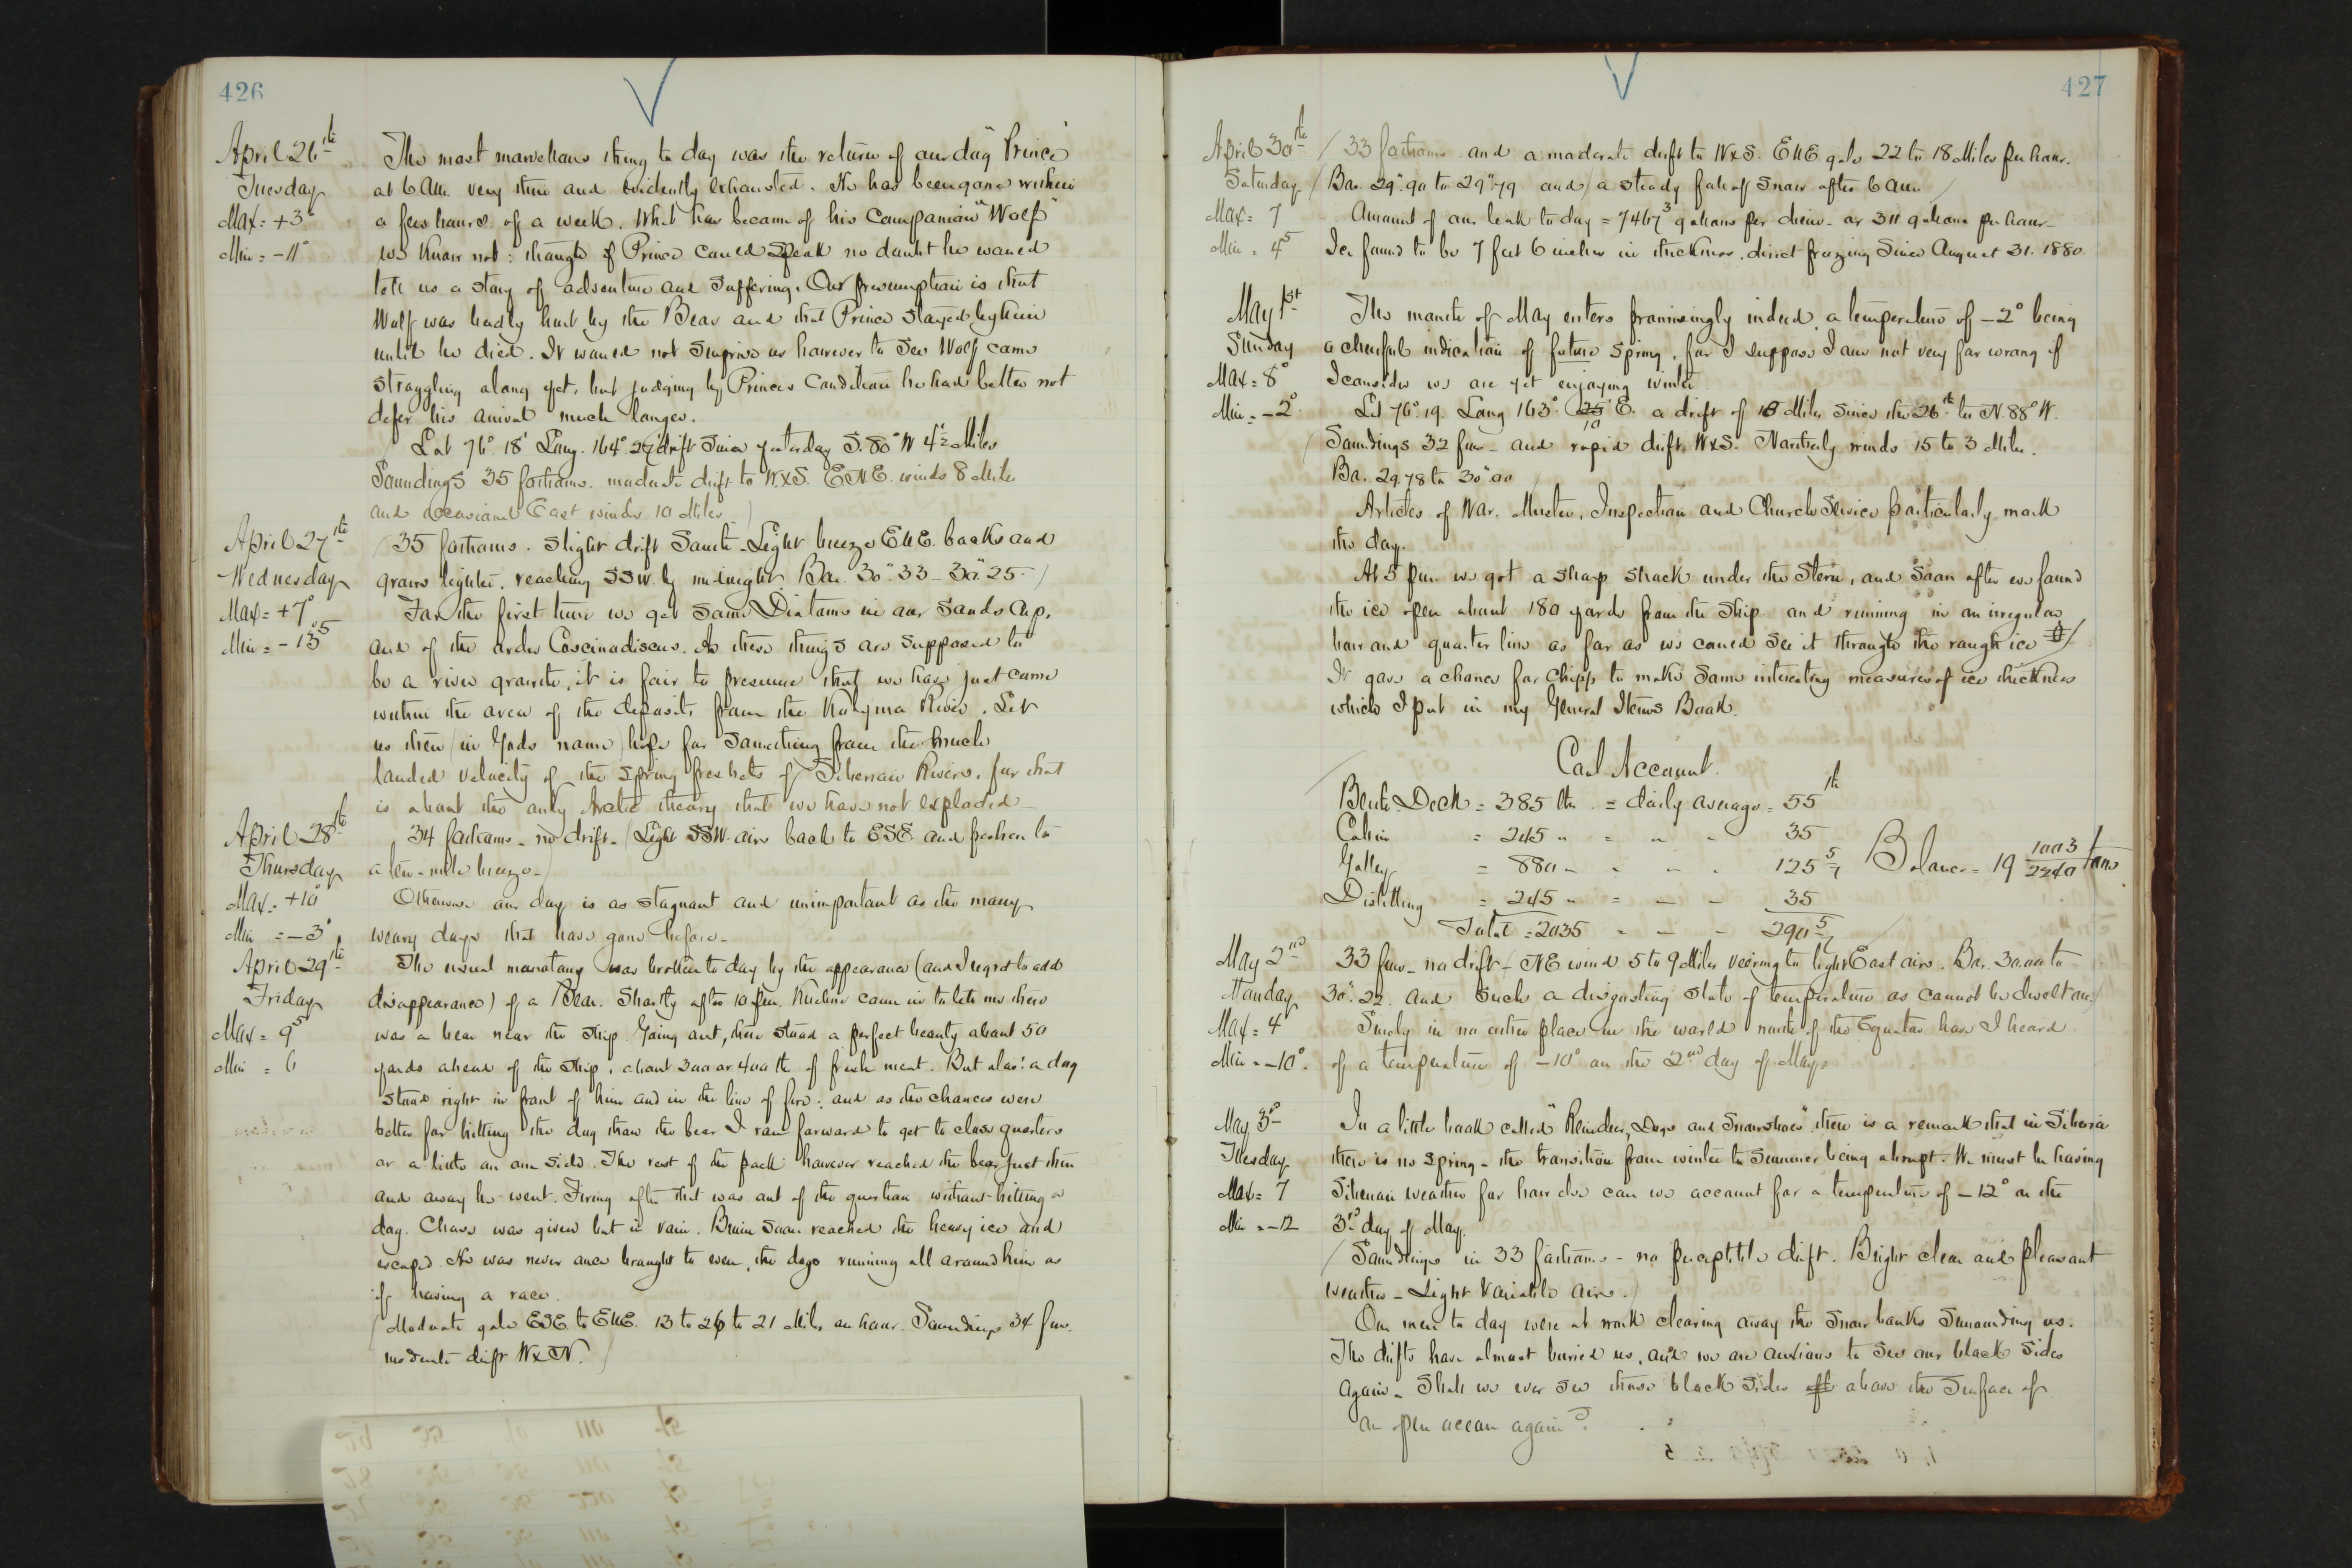 426
April 26th
Tuesday
Max = +3°
Min = -11°
The most marvellous thing to day was the return of our dog "Prince"
at 6 A.M. very thin and evidently exhausted. He has been gone within
a few hours of a week. What has become of his companion "Wolf"
we know not: though if Prince could speak no doubt he would
tell us a story of adventure and suffering. Our presumption is that
Wolf was badly hurt by the Bear and that Prince stayed by him
until he died. It would not surprise us however to see Wolf come
straggling along yet, but judging by Prince's condition he had better not
defer his arrival much longer.
Lat 76°. 18' Long. 164° drift since yesterday S. 80° W 4½ Miles
Soundings 35 fathoms. moderate drift to W.x S. E.N.E. winds 8 Miles
and occasional East winds 10 Miles.)
April 27th
Wednesday
Max = +7°
Min = -13⁵
(35 fathoms. Slight drift South - Light breeze ENE. backs and
grows lighter, reaching SSW. by midnight Bar. 30".33 - 30".25.)
For the first time we get some Diatoms in our Sands Cup,
and of the order Coscinodiscus. As these things are supposed to
be a river growth, it is fair to presume that we have just come
within the area of the deposits from the Kolyma River. Let
us then (in God's name) hope for something from the much
lauded velocity of the spring freshets of Siberian Rivers, for that
is about the only Arctic theory that we have not exploded -
April 28th
Thursday
Max. +10°
Min = -3°
34 fathoms - no drift - (Light SSW. airs back to ESE and freshen to
a ten-mile breeze -)
Otherwise our day is as stagnant and unimportant as the many
weary days that have gone before -
April 29th
Friday
Max = 9⁵
Min = 6
The usual monotony was broken to day by the appearance (and I regret to add
disappearance) of a Bear. Shortly after 10 p.m. came in to tell me there
was a bear near the ship. Going out, there stood a perfect beauty about 50
yards ahead of the ship, about 300 or 400 lb of fresh meat. But alas! a dog
stood right in front of him and in the line of fire: and as the chances were
better for hitting the dog than the bear I ran forward to get to close quarters
or a little on one side. The rest of the pack however reached the bear just then
and away he went. Firing after that was out of the question without hitting a
dog. Chase was given but in vain. Bruin soon reached the heavy ice and
escaped. He was never once brought to even, the dogs running all around him as
if having a race.
(Moderate gale ESE to ENE. 13 to 26 to 21 Miles an hour. Soundings 34 fms.
moderate drift W x N.)
427
April 30th
Saturday
Max = 7
Min = 4⁵
(33 fathoms and a moderate drift to W x S. ENE gale 22 to 18 Miles per hour.
(Bar. 29".90 to 29".79 and) a steady fall of snow after 6 am
Amount of our leak to day = 7467³ gallons per diem - or 311 gallons per hour -
Ice found to be 7 feet 6 inches in thickness, direct freezing since August 31. 1880.
May 1st
Sunday
Max = 8°
Min = -2°
The month of May enters promisingly indeed, a temperature of -2° being
a cheerful indication of future spring, for I suppose I am not very far wrong if
I consider we are yet enjoying winter.
Lat 76°. 19. Long 163°. 25 10 E. a drift of 18 Miles since the 26th to N. 88° W.
(Soundings 32 fms - and rapid drift W x S. Northerly winds 15 to 3 Miles.
Ba. 29.78 to 30".00
Articles of War. Muster, Inspection and Church Service particularly mark
the day.
At 5 pm. we got a sharp shock under the Stern, and soon after we found
the ice open about 180 yards from the Ship and running in an irregular
bow and quarter line as far as we could see it through the rough ice
It gave a chance for Chipp to make some interesting measures of ice thickness
which I put in my General Items Book.
Coal Account.
Berth Deck = 385 lbs. = daily average = 55 lb
Cabin = 245 " = " - 35
Galley = 880 " - " - 125 5/7 Balance = 19 1003/2240 tons
Distilling = 245 " = - - 35
Total = 2035 - - - 290 5/7
May 2nd
Monday
Max = 4
Min = -10°
33 fms - no drift - NE wind 5 to 9 Miles veering to light East airs. Bar. 30.00 to
30".22. and such a disgusting state of temperature as cannot be dwelt on.)
Surely in no other place in the world north of the Equator have I heard
of a temperature of -10° on the 2nd day of May.
May 3rd
Tuesday
Max = 7
Min = -12
In a little book called "Reindeer, Dogs and Snowshoes" there is a remark that in Siberia
there is no spring - the transition from winter to summer being abrupt. We must be having
Siberian weather for how else can we account for a temperature of -12° on the
3rd day of May.
(Soundings in 33 fathoms - no perceptible drift. Bright clear and pleasant
weather - Light variable airs.)
Our men to day were at work clearing away the snow banks surrounding us.
The drifts have almost buried us, and we are anxious to see our black sides
again. Shall we ever see those black sides above the surface of
an open ocean again?